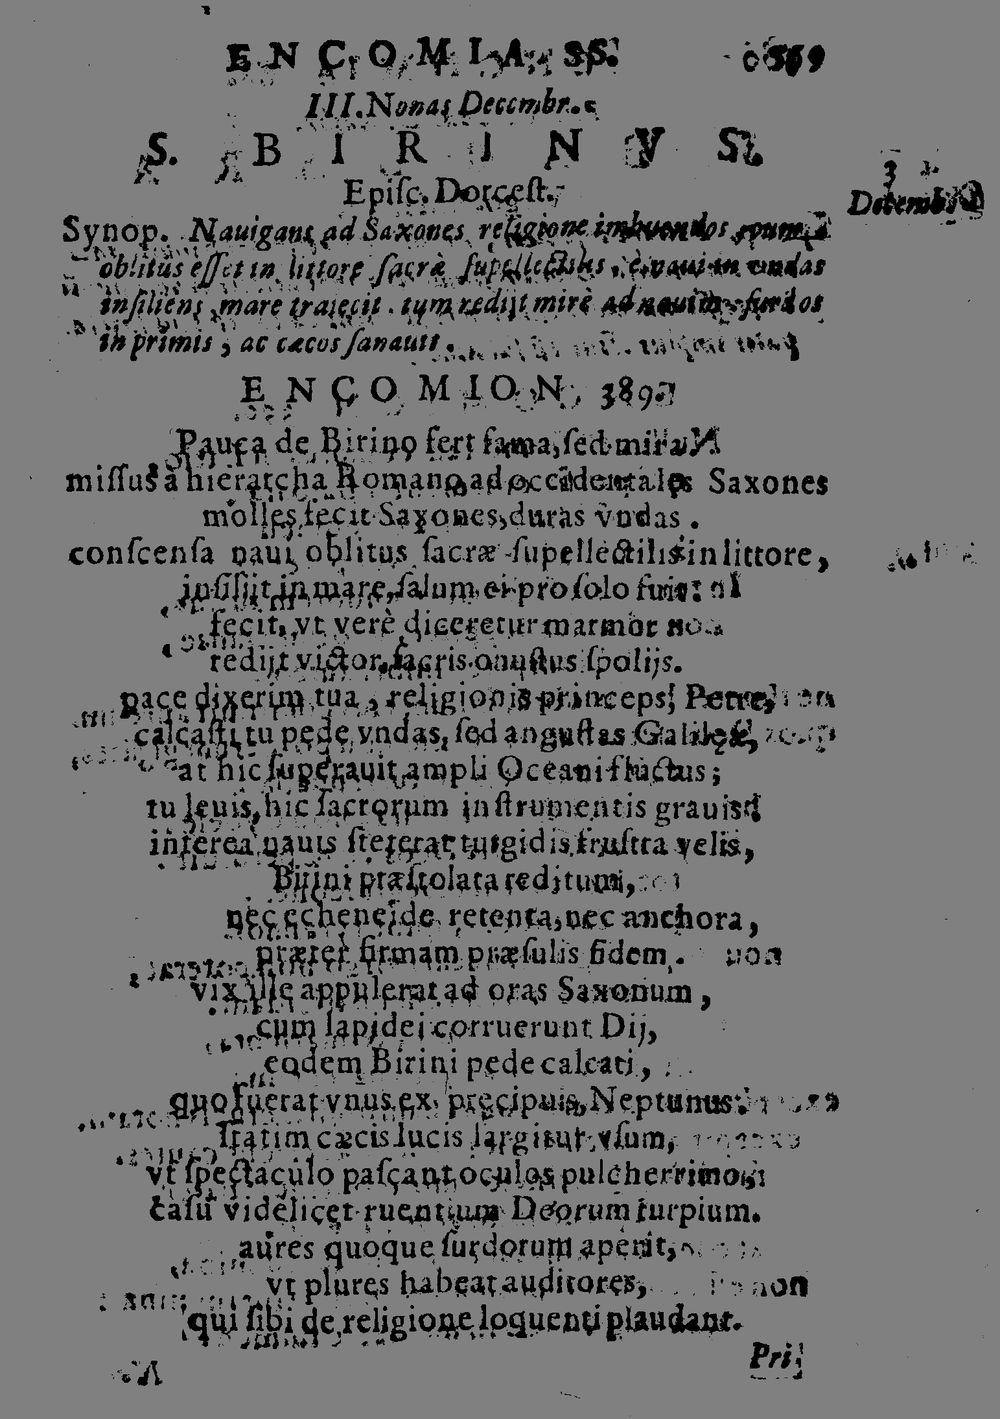 ENCOMIA SS. 569
III. Nonas Decembr.
S. BIRINVS.
Episc. Dorcest.
3
Decemb.
Synop. Nauigans ad Saxones religione imbuendos, quum
oblitus esset in littore sacræ supellectilis, è naui in vndas
insiliens, mare traiecit. tum redijt mirè ad nauim. surdos
in primis, ac cæcos sanauit.
ENCOMION 389.
Pauca de Birino fert fama, sed mira.
missus à hierarcha Romano ad occidentales Saxones
molles fecit Saxones, duras vndas.
conscensa naui oblitus sacræ supellectilis in littore,
insilijt in mare, salum ei pro solo fuit:
fecit, vt verè diceretur marmor
redijt victor, sacris onustus spolijs.
pace dixerim tua, religionis princeps, Petre,
calcasti tu pede vndas, sed angustas Galilęę,
at hic superauit ampli Oceani fluctus;
tu leuis, hic sacrorum instrumentis grauis:
interea nauis steterat turgidis frustra velis,
Birini præstolata reditum,
nec echeneide retenta, nec anchora,
præter firmam præsulis fidem.
vix ille appulerat ad oras Saxonum,
cum lapidei corruerunt Dij,
eodem Birini pede calcati,
quo fuerat vnus ex pręcipuis, Neptunus:
statim cæcis lucis largitur vsum,
vt spectaculo pascant oculos pulcherrimo,
casu videlicet ruentium Deorum turpium.
aures quoque surdorum aperit,
vt plures habeat auditores,
qui sibi de religione loquenti plaudant.
Pri